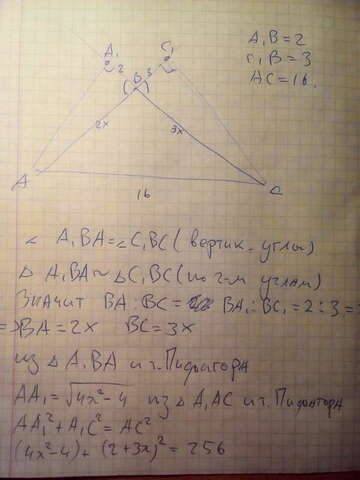 A₁B = 2
C₁B = 3
AC = 16.
A₁ C₁
2 B 3
2x 3x
A C
16
∠ A₁BA = ∠ C₁BC (вертик. углы)
Δ A₁BA ~ Δ C₁BC (по 2-м углам)
Значит BA : BC = BA₁ : BC₁ = 2 : 3 =>
=> BA = 2x BC = 3x
из Δ A₁BA и т. Пифагора
AA₁ = √4x² - 4 из Δ A₁AC и т. Пифагора
AA₁² + A₁C² = AC²
(4x² - 4) + (2 + 3x)² = 256